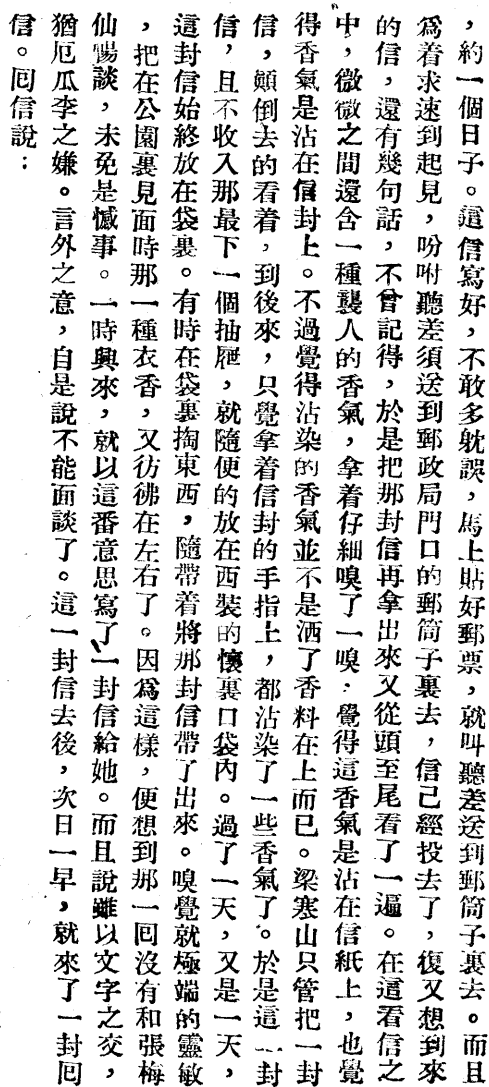 ，約一個日子。這信寫好，不敢多躭誤，馬上貼好郵票，就叫聽差送到郵筒子裏去。而且
爲着求速到起見，吩咐聽差須送到郵政局門口的郵筒子裏去，信已經投去了，復又想到來
的信，還有幾句話，不曾記得，於是把那封信再拿出來又從頭至尾看了一遍。在這看信之
中，微微之間還含一種襲人的香氣，拿着仔細嗅了一嗅：覺得這香氣是沾在信紙上，也覺
得香氣是沾在信封上。不過覺得沾染的香氣並不是洒了香料在上而已。梁寒山只管把一封
信，顛倒去的看着，到後來，只覺拿着信封的手指上，都沾染了一些香氣了。於是這一封
信，且不收入那最下一個抽屜，就隨便的放在西裝的懷裏口袋內。過了一天，又是一天，
這封信始終放在袋裏。有時在袋裏掏東西，隨帶着將那封信帶了出來。嗅覺就極端的靈敏
，把在公園裏見面時那一種衣香，又彷彿在左右了。因爲這樣，便想到那一回沒有和張梅
仙暢談，未免是憾事。一時興來，就以這番意思寫了一封信給她。而且說雖以文字之交，
猶厄瓜李之嫌。言外之意，自是說不能面談了。這一封信去後，次日一早，就來了一封回
信。回信說：